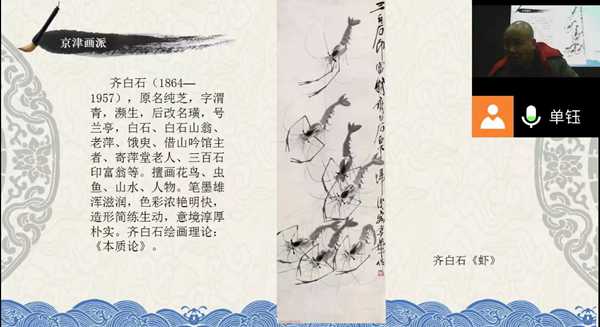 京津画派
齐白石（1864—
1957），原名纯芝，字渭
青，濒生，后改名璜，号
兰亭，白石、白石山翁、
老萍、饿叟、借山吟馆主
者、寄萍堂老人、三百石
印富翁等。擅画花鸟、虫
鱼、山水、人物。笔墨雄
浑滋润，色彩浓艳明快，
造形简练生动，意境淳厚
朴实。齐白石绘画理论：
《本质论》。
三百石印富翁齐白石
齐白石《虾》
单钰